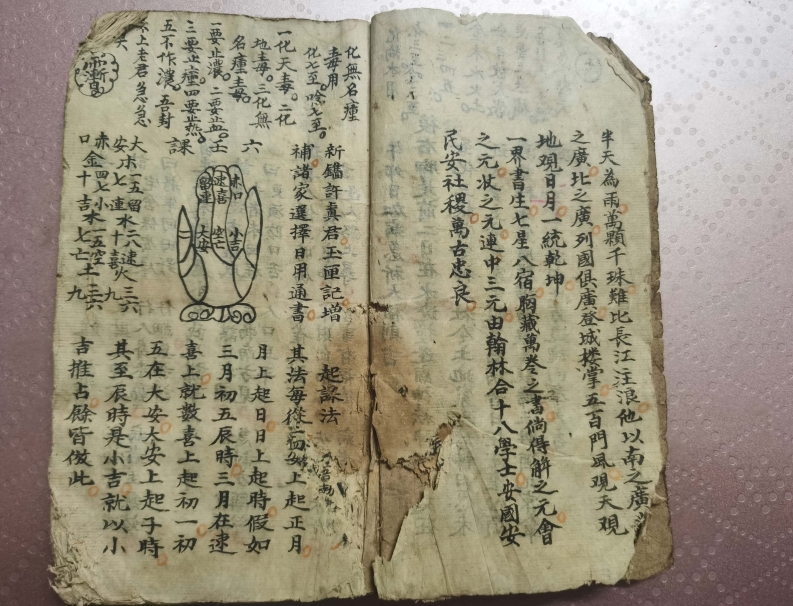 半天為雨萬顆千珠難比長江汪浪他以南之廣
之廣北之廣列國俱廣登城樓掌五百門風观天观
地观日月一統乾坤
一界書生七星八宿胸藏萬巻之書倘得解之元會
之元状之元連中三元由翰林合十八學士安國安
民安社稷萬古忠良
化無名瘇
毒用
化七至唅七至。
一化天毒。二化
地毒。三化無
名瘇毒。
一要止濃。二要止血。
三要止瘇四要止热。
五不作濃。吾封
太上老君急急
新鐫許真君玉匣記增
補諸家選擇日用通書
六壬課
留連 速喜 赤口
大安 空亡 小吉
大安 一五七
留連 二八十
速喜 三六九
赤口 四七十
小吉 一五七
空亡 三六九
木 水 火 金 木 土
起訣法
其法每從上起正月
月上起日日上起時假如
三月初五辰時三月在速
喜上就數喜上起初一初
五在大安大安上起子時
其至辰時是小吉就以小
吉推占餘皆倣此